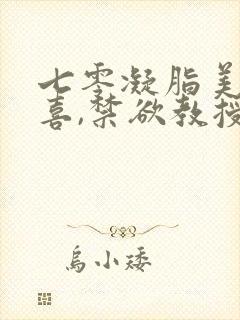 七零凝脂美
喜,禁欲教授
乌小矮